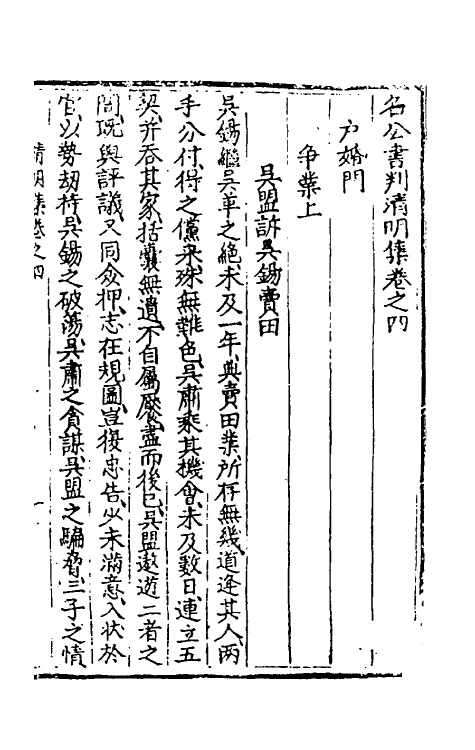 名公書判清明集卷之四
户婚門
争業上
吳盟訴吳錫賣田
吳錫繼吳革之絶未及一年典賣田業所存無幾道逢其人兩
手分付得之儻來殊無難色吳肅乘其機會未及數日連立五
契并吞其家括囊無遺不自屬饜盡而後已吳盟遨遊二者之
間既與評議又同僉押志在規圖豈復忠告少未滿意入狀於
官以勢劫持吳錫之破蕩吳肅之貪謀吳盟之騙脅三子之情
清明集卷之四
一